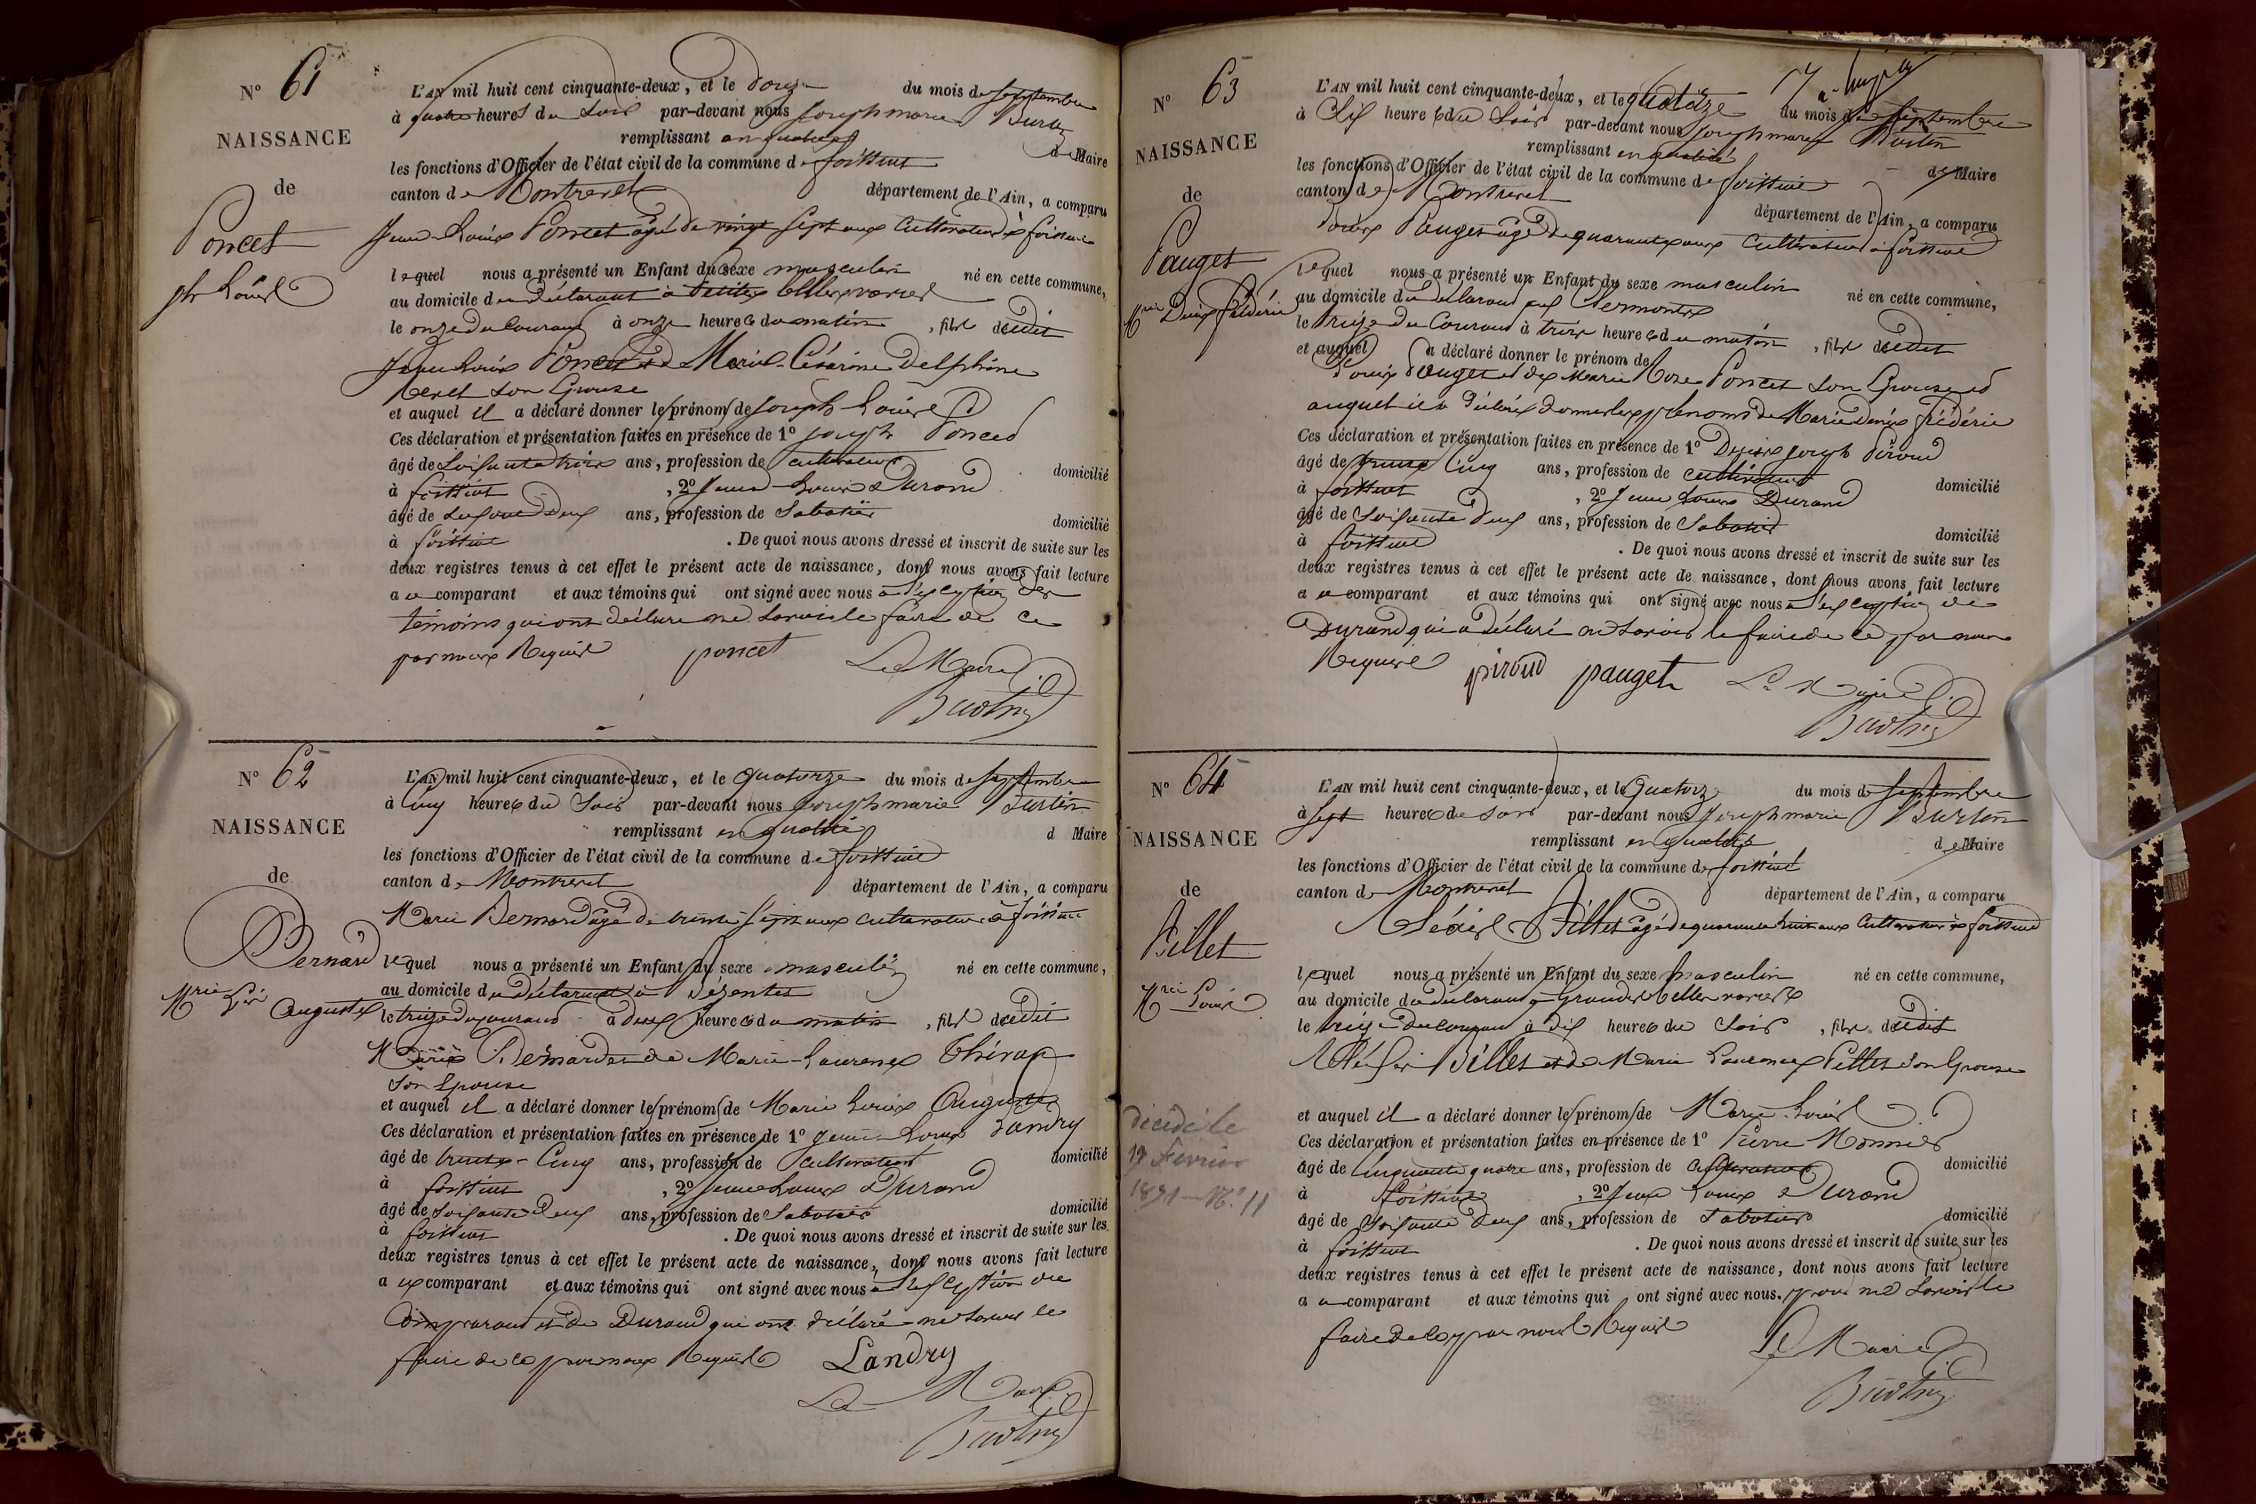 N° 61
NAISSANCE
de
Poncet
ph Louis
L'AN mil huit cent cinquante-deux, et le douze du mois de septembre
à quatre heures du soir par-devant nous Joseph marie Burtin
remplissant en qualité de Maire
les fonctions d'Officier de l'état civil de la commune de foissiat
canton de Montrevel département de l'Ain, a comparu
Jean-Louis Poncet agé de vingt sept ans Cultivateur à foissiat
lequel nous a présenté un Enfant du sexe masculin né en cette commune,
au domicile du déclarant à
le onze du Courant à onze heures du matin, fils dudit
Jean Louis Poncet et de Marie-Césarine Delphine
son Epouse
et auquel il a déclaré donner les prénoms de Joseph Louis
Ces déclaration et présentation faites en présence de 1° Joseph Poncet
âgé de Soixante trois ans, profession de cultivateur domicilié
à foissiat, 2° Jean-Louis Durand
âgé de Soixante Deux ans, profession de Sabotier domicilié
à foissiat. De quoi nous avons dressé et inscrit de suite sur les
deux registres tenus à cet effet le présent acte de naissance, dont nous avons fait lecture
au comparant et aux témoins qui ont signé avec nous à l'exception des
témoins qui ont déclaré ne savoir le faire de ce
par nous Requis poncet Le Maire
Burtin
N° 62
NAISSANCE
de
Bernard
Mrie Auguste
L'AN mil huit cent cinquante-deux, et le quatorze du mois de septembre
à cinq heures du Soir par-devant nous Joseph marie Burtin
remplissant en qualité d Maire
les fonctions d'Officier de l'état civil de la commune de foissiat
canton de Montrevel département de l'Ain, a comparu
Marie Bernard âgé de trente sept ans cultivateur à foissiat
lequel nous a présenté un Enfant du sexe masculin né en cette commune,
au domicile du déclarant à
le treize du courant à deux heures du matin, fils dudit
Marie Bernard et de Marie-Laurence
Son Epouse
et auquel il a déclaré donner les prénoms de Marie Louis Auguste
Ces déclaration et présentation faites en présence de 1° Jean-Louis Landry
âgé de trente-Cinq ans, profession de cultivateur domicilié
à foissiat, 2° Jean Louis Durand
âgé de Soixante Deux ans, profession de Sabotier domicilié
à foissiat. De quoi nous avons dressé et inscrit de suite sur les
deux registres tenus à cet effet le présent acte de naissance, dont nous avons fait lecture
au comparant et aux témoins qui ont signé avec nous à l'exception du
Comparant et de Durand qui ont déclaré ne savoir le
faire de ce par nous Requis Landry
Le Maire
Burtin
N° 63
NAISSANCE
de
Pauget
Mrie Denis frédéric
L'AN mil huit cent cinquante-deux, et le quatorze du mois de septembre
à Six heures du Soir par-devant nous Joseph marie Burtin
remplissant en qualité de Maire
les fonctions d'Officier de l'état civil de la commune de foissiat
canton de Montrevel département de l'Ain, a comparu
Louis Pauget âgé de quarante ans Cultivateur à foissiat
lequel nous a présenté un Enfant du sexe masculin né en cette commune,
au domicile du déclarant
le treize du Courant à trois heures du matin, fils dudit
et auquel a déclaré donner le prénom de
Louis Pauget et de Marie Poncet Son Epouse et
auquel il a déclaré donner les prénoms de Marie denis frédéric
Ces déclaration et présentation faites en présence de 1° Joseph Piroud
âgé de trente Cinq ans, profession de cultivateur domicilié
à foissiat, 2° Jean Louis Durand
âgé de Soixante Deux ans, profession de Sabotier domicilié
à foissiat. De quoi nous avons dressé et inscrit de suite sur les
deux registres tenus à cet effet le présent acte de naissance, dont nous avons fait lecture
au comparant et aux témoins qui ont signé avec nous à l'exception de
Durand qui a déclaré ne savoir le faire de ce par nous
Requis piroud pauget Le Maire
Burtin
N° 64
NAISSANCE
de
Billet
Mrie Louis
décédé le
19 Fevrier
1891 - N° 11
L'AN mil huit cent cinquante-deux, et le quatorze du mois de septembre
à Sept heures du soir par-devant nous Joseph marie Burtin
remplissant en qualité de Maire
les fonctions d'Officier de l'état civil de la commune de foissiat
canton de Montrevel département de l'Ain, a comparu
Billet agé de quarante huit ans Cultivateur à foissiat
lequel nous a présenté un Enfant du sexe masculin né en cette commune,
au domicile du déclarant à
le treize du courant à dix heures du Soir, fils dudit
Billet et de Marie Laurence Son Epouse
et auquel il a déclaré donner les prénoms de Marie-Louis
Ces déclaration et présentation faites en présence de 1° Pierre Monnier
âgé de cinquante quatre ans, profession de cultivateur domicilié
à foissiat, 2° Jean Louis Durand
âgé de Soixante Deux ans, profession de Sabotier domicilié
à foissiat. De quoi nous avons dressé et inscrit de suite sur les
deux registres tenus à cet effet le présent acte de naissance, dont nous avons fait lecture
au comparant et aux témoins qui ont signé avec nous. pour ne Savoir le
faire de ce par nous Requis
Le Maire
Burtin